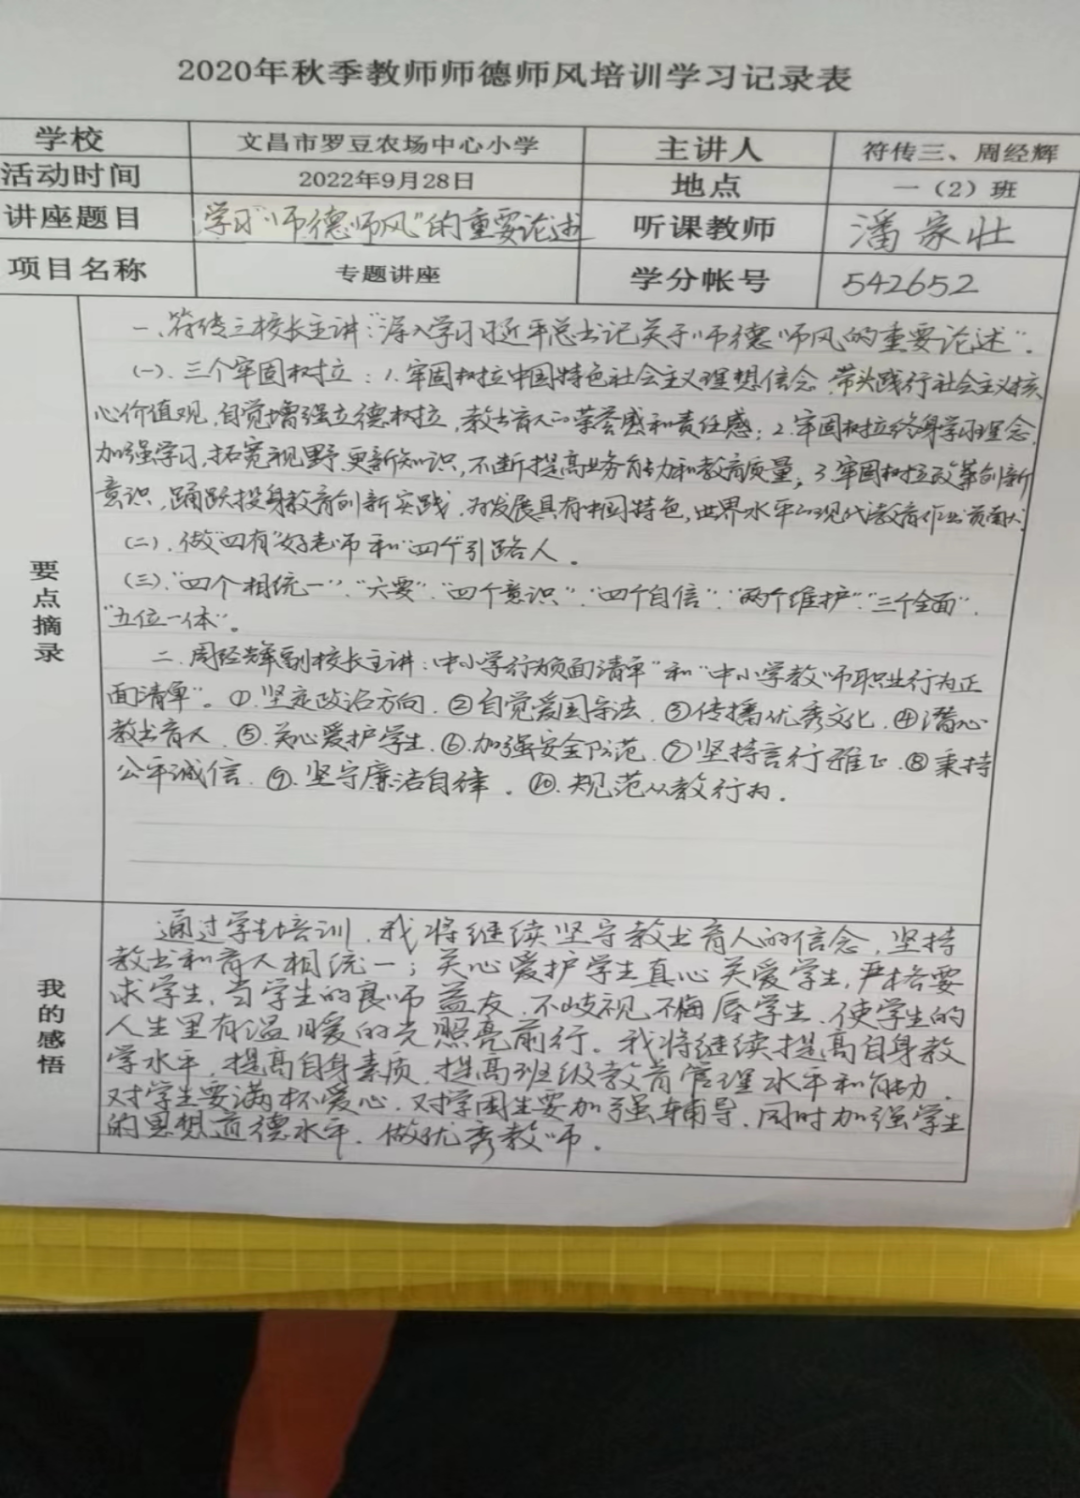 2020年秋季教师师德师风培训学习记录表
学校 文昌市罗豆农场中心小学 主讲人 符传三、周经辉
活动时间 2022年9月28日 地点 一（2）班
讲座题目 学习“师德师风”的重要论述 听课教师 潘家壮
项目名称 专题讲座 学分帐号 542652
要点摘录
一、符传三校长主讲：“深入学习习近平总书记关于师德师风的重要论述”．
（一）．三个牢固树立：1．牢固树立中国特色社会主义理想信念，带头践行社会主义核
心价值观，自觉增强立德树立，教书育人的荣誉感和责任感；2．牢固树立终身学习理念，
加强学习，拓宽视野，更新知识，不断提高业务能力和教育质量；3．牢固树立改革创新
意识，踊跃投身教育创新实践，为发展具有中国特色，世界水平的现代教育作出贡献
（二）．做“四有”好老师和“四个”引路人．
（三）．“四个相统一”．“六要”．“四个意识”．“四个自信”．“两个维护”．“三个全面”．
“五位一体”。
二．周经辉副校长主讲：“中小学行为负面清单”和“中小学教师职业行为正
面清单”。①．坚定政治方向．②自觉爱国守法．③传播优秀文化．④潜心
教书育人．⑤．关心爱护学生．⑥．加强安全防范．⑦坚持言行雅正．⑧秉持
公平诚信．⑨．坚守廉洁自律．⑩．规范从教行为．
我的感悟
通过学生培训，我将继续坚守教书育人的信念，坚持
教书和育人相统一；关心爱护学生真心关爱学生，严格要
求学生，当学生的良师益友，不歧视不侮辱学生，使学生的
人生里有温暖的光照亮前行。我将继续提高自身教
学水平，提高自身素质，提高班级教育管理水平和能力，
对学生要满怀爱心，对学困生要加强辅导，同时加强学生
的思想道德水平，做优秀教师．